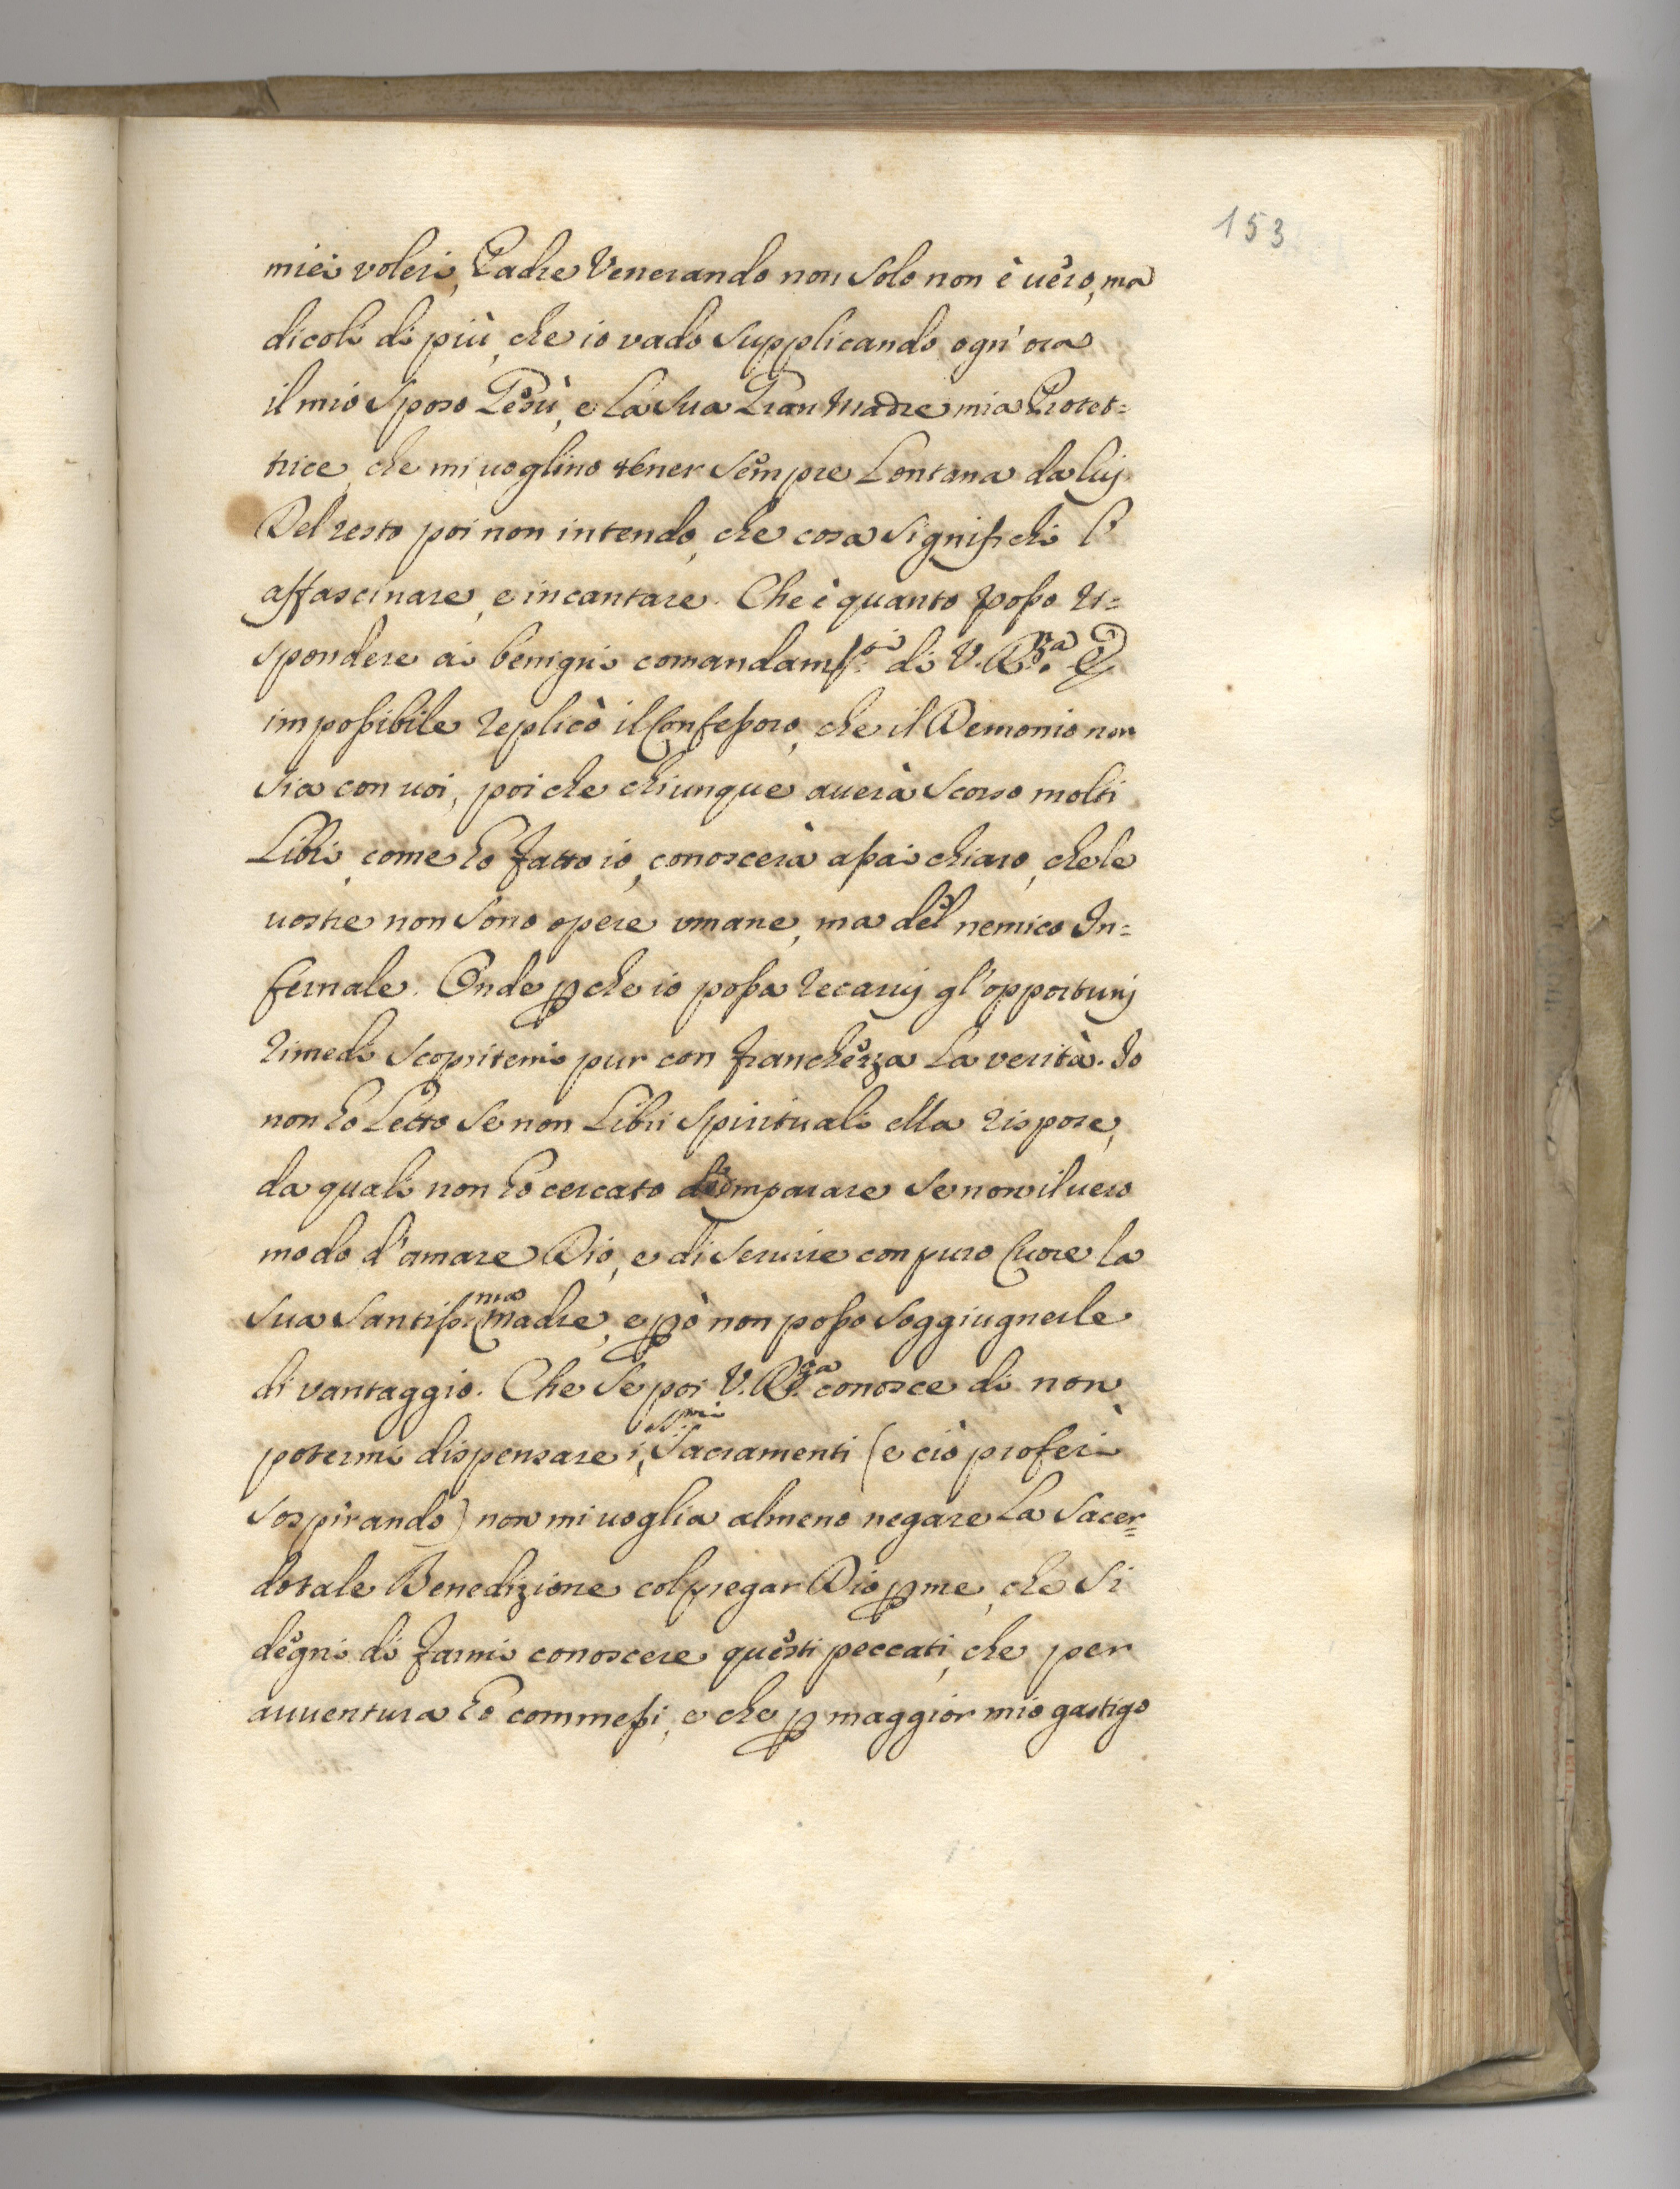 153
miei voleri, Padre Venerando non solo non è uero, ma
dicoli di più, che io vado supplicando ogn'ora
il mio Sposo Gesù, e la sua Gran Madre mia Protet=
trice, che mi uoglino tener sempre lontana da luj.
Del resto poi non intendo, che cosa significhi l'
affascinare, e incantare. Che è quanto posso ri=
spondere ai benigni comandam.ti di V. R.za È
impossibile replicò il Confessoro, che il Demonio non
sia con uoi, poi che chiunque auerà scorso molti
Libri, come ho fatto io, conoscerà assai chiaro, che le
uostre non sono opere vmane, ma del nemico In=
fernale. Onde p che io possa recaruj gl'opportunj
rimedi scopritemi pur con franchezza la verità. Io
non ho letto se non Libri Spirituali ella rispose,
da quali non ho cercato d'imparare se non il uero
modo d'amare Dio, e di seruire con puro Cuore la
sua Santiss.ma Madre, e pò non posso soggiugnerle
di vantaggio. Che se poi V. R.za conosce di non
potermi dispensare i S.mi Sacramenti (e ciò proferì
sospirando) non mi uoglia almeno negare la Sacer=
dotale Benedizione col pregar Dio p me, che si
degni di farmi conoscere questi peccati, che per
auuentura ho commessi, e che p maggior mio gastigo